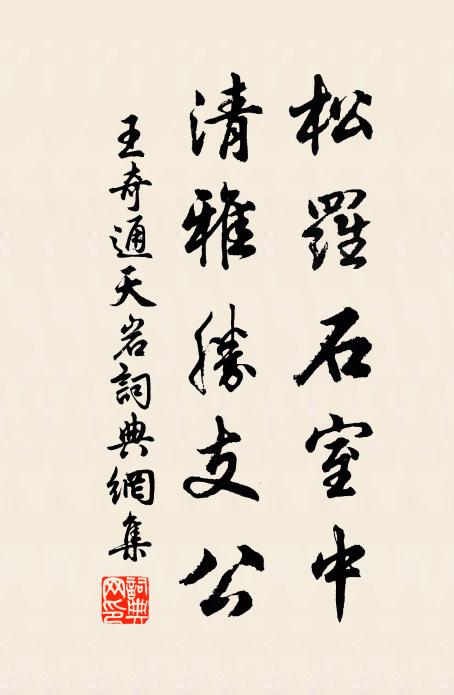 松羅石室中
清雅勝支公
王奇通天岩詞典網集
詞典网印